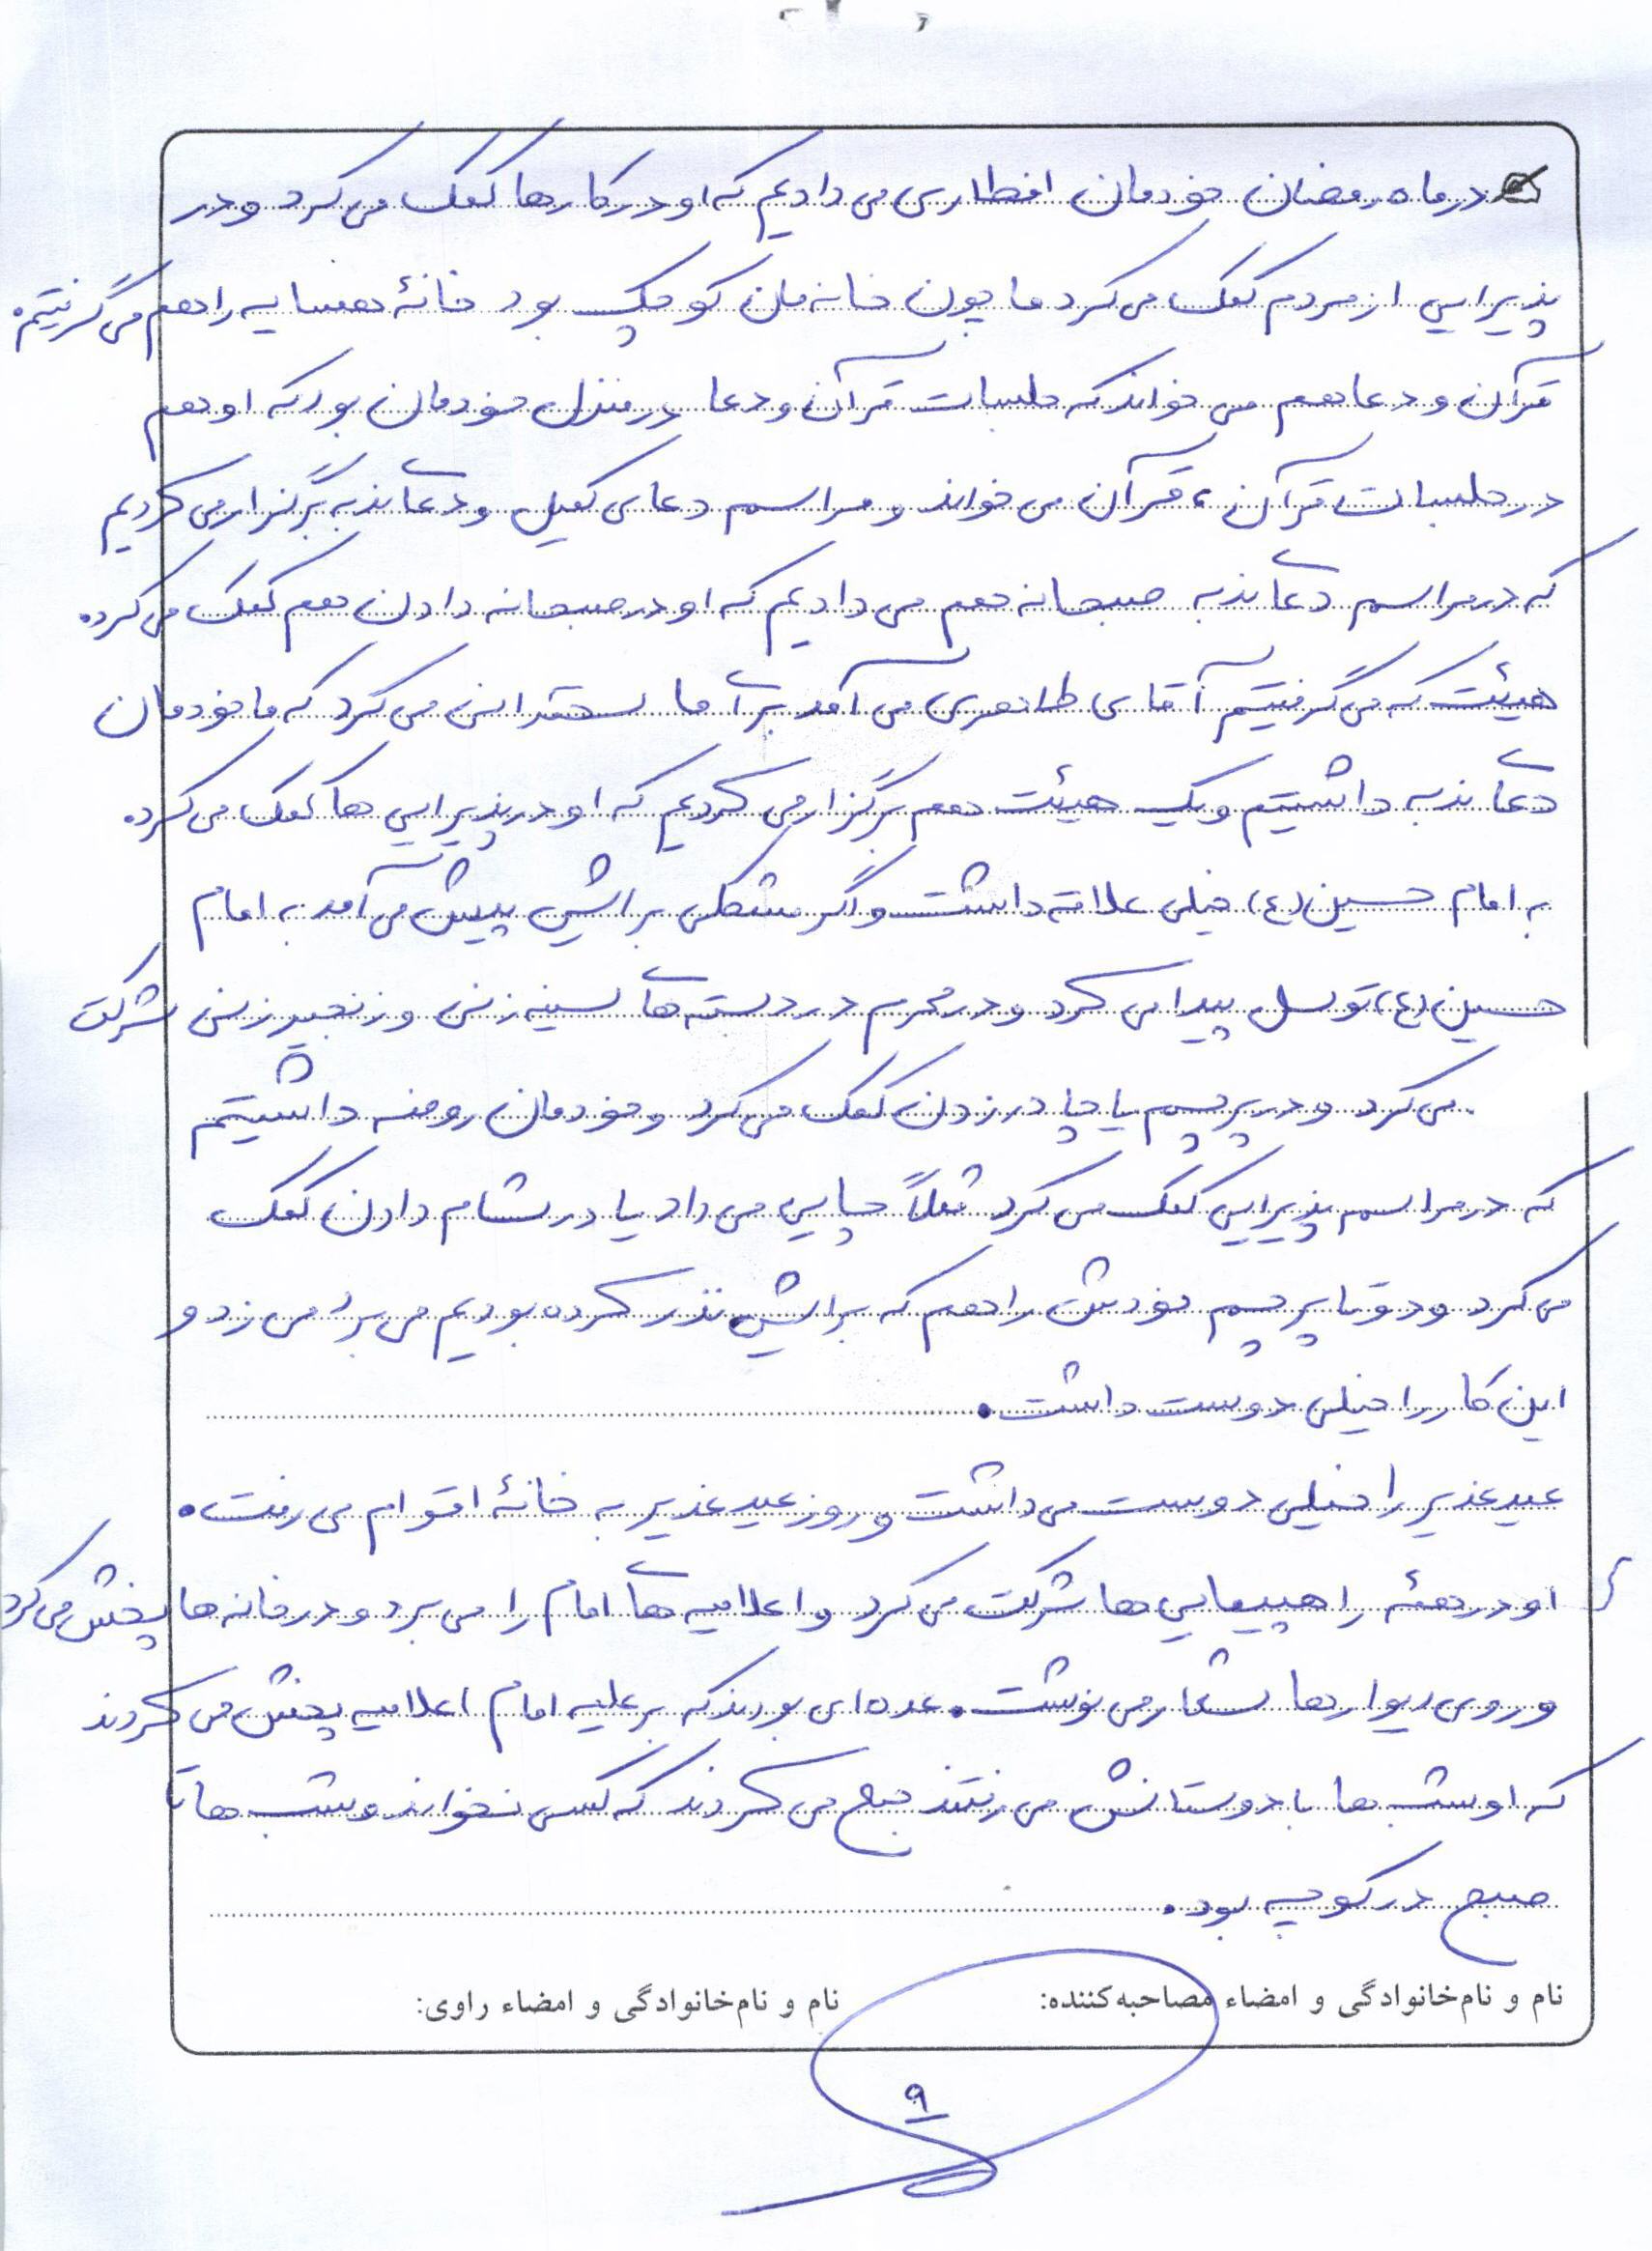 در ماه رمضان خودمان افطاری می دادیم که او در کارها کمک می کرد و در
پذیرایی از مردم کمک می کرد ما چون خانه مان کوچک بود خانهٔ همسایه را هم می گرفتیم.
قرآن و دعا هم می خواند که جلسات قرآن و دعا در منزل خودمان بود که او هم
در جلسات قرآن، قرآن می خواند و مراسم دعای کمیل و دعای ندبه برگزار می کردیم
که در مراسم دعای ندبه صبحانه هم می دادیم که او در صبحانه دادن هم کمک می کرد.
هیئت که می گرفتیم آقای طاهری می آمد برای ما سخنرانی می کرد که ما خودمان
دعای ندبه داشتیم و یک هیئت هم برگزار می کردیم که او در پذیرایی ها کمک می کرد.
به امام حسین (ع) خیلی علاقه داشت و اگر مشکلی برایش پیش می آمد به امام
حسین (ع) توسل پیدا می کرد و در محرم در دسته های سینه زنی و زنجیر زنی شرکت
می کرد و در پرچم یا چادر زدن کمک می کرد و خودمان روضه داشتیم
که در مراسم پذیرایی کمک می کرد مثلاً چایی می داد یا در شام دادن کمک
می کرد و دو تا پرچم خودش را هم که برایش نذر کرده بودیم می برد می زد و
این کار را خیلی دوست داشت.
عید غدیر را خیلی دوست می داشت و روز عید غدیر به خانهٔ اقوام می رفت.
او در همهٔ راهپیمایی ها شرکت می کرد و اعلامیه های امام را می برد و در خانه ها پخش می کرد
و روی دیوارها شعار می نوشت. عده ای بودند که بر علیه امام اعلامیه پخش می کردند
که او شب ها با دوستانش می رفتند جمع می کردند که کسی نخواند و شب ها تا
صبح در کوچه بود.
نام و نام‌خانوادگی و امضاء مصاحبه‌کننده: نام و نام‌خانوادگی و امضاء راوی:
۹